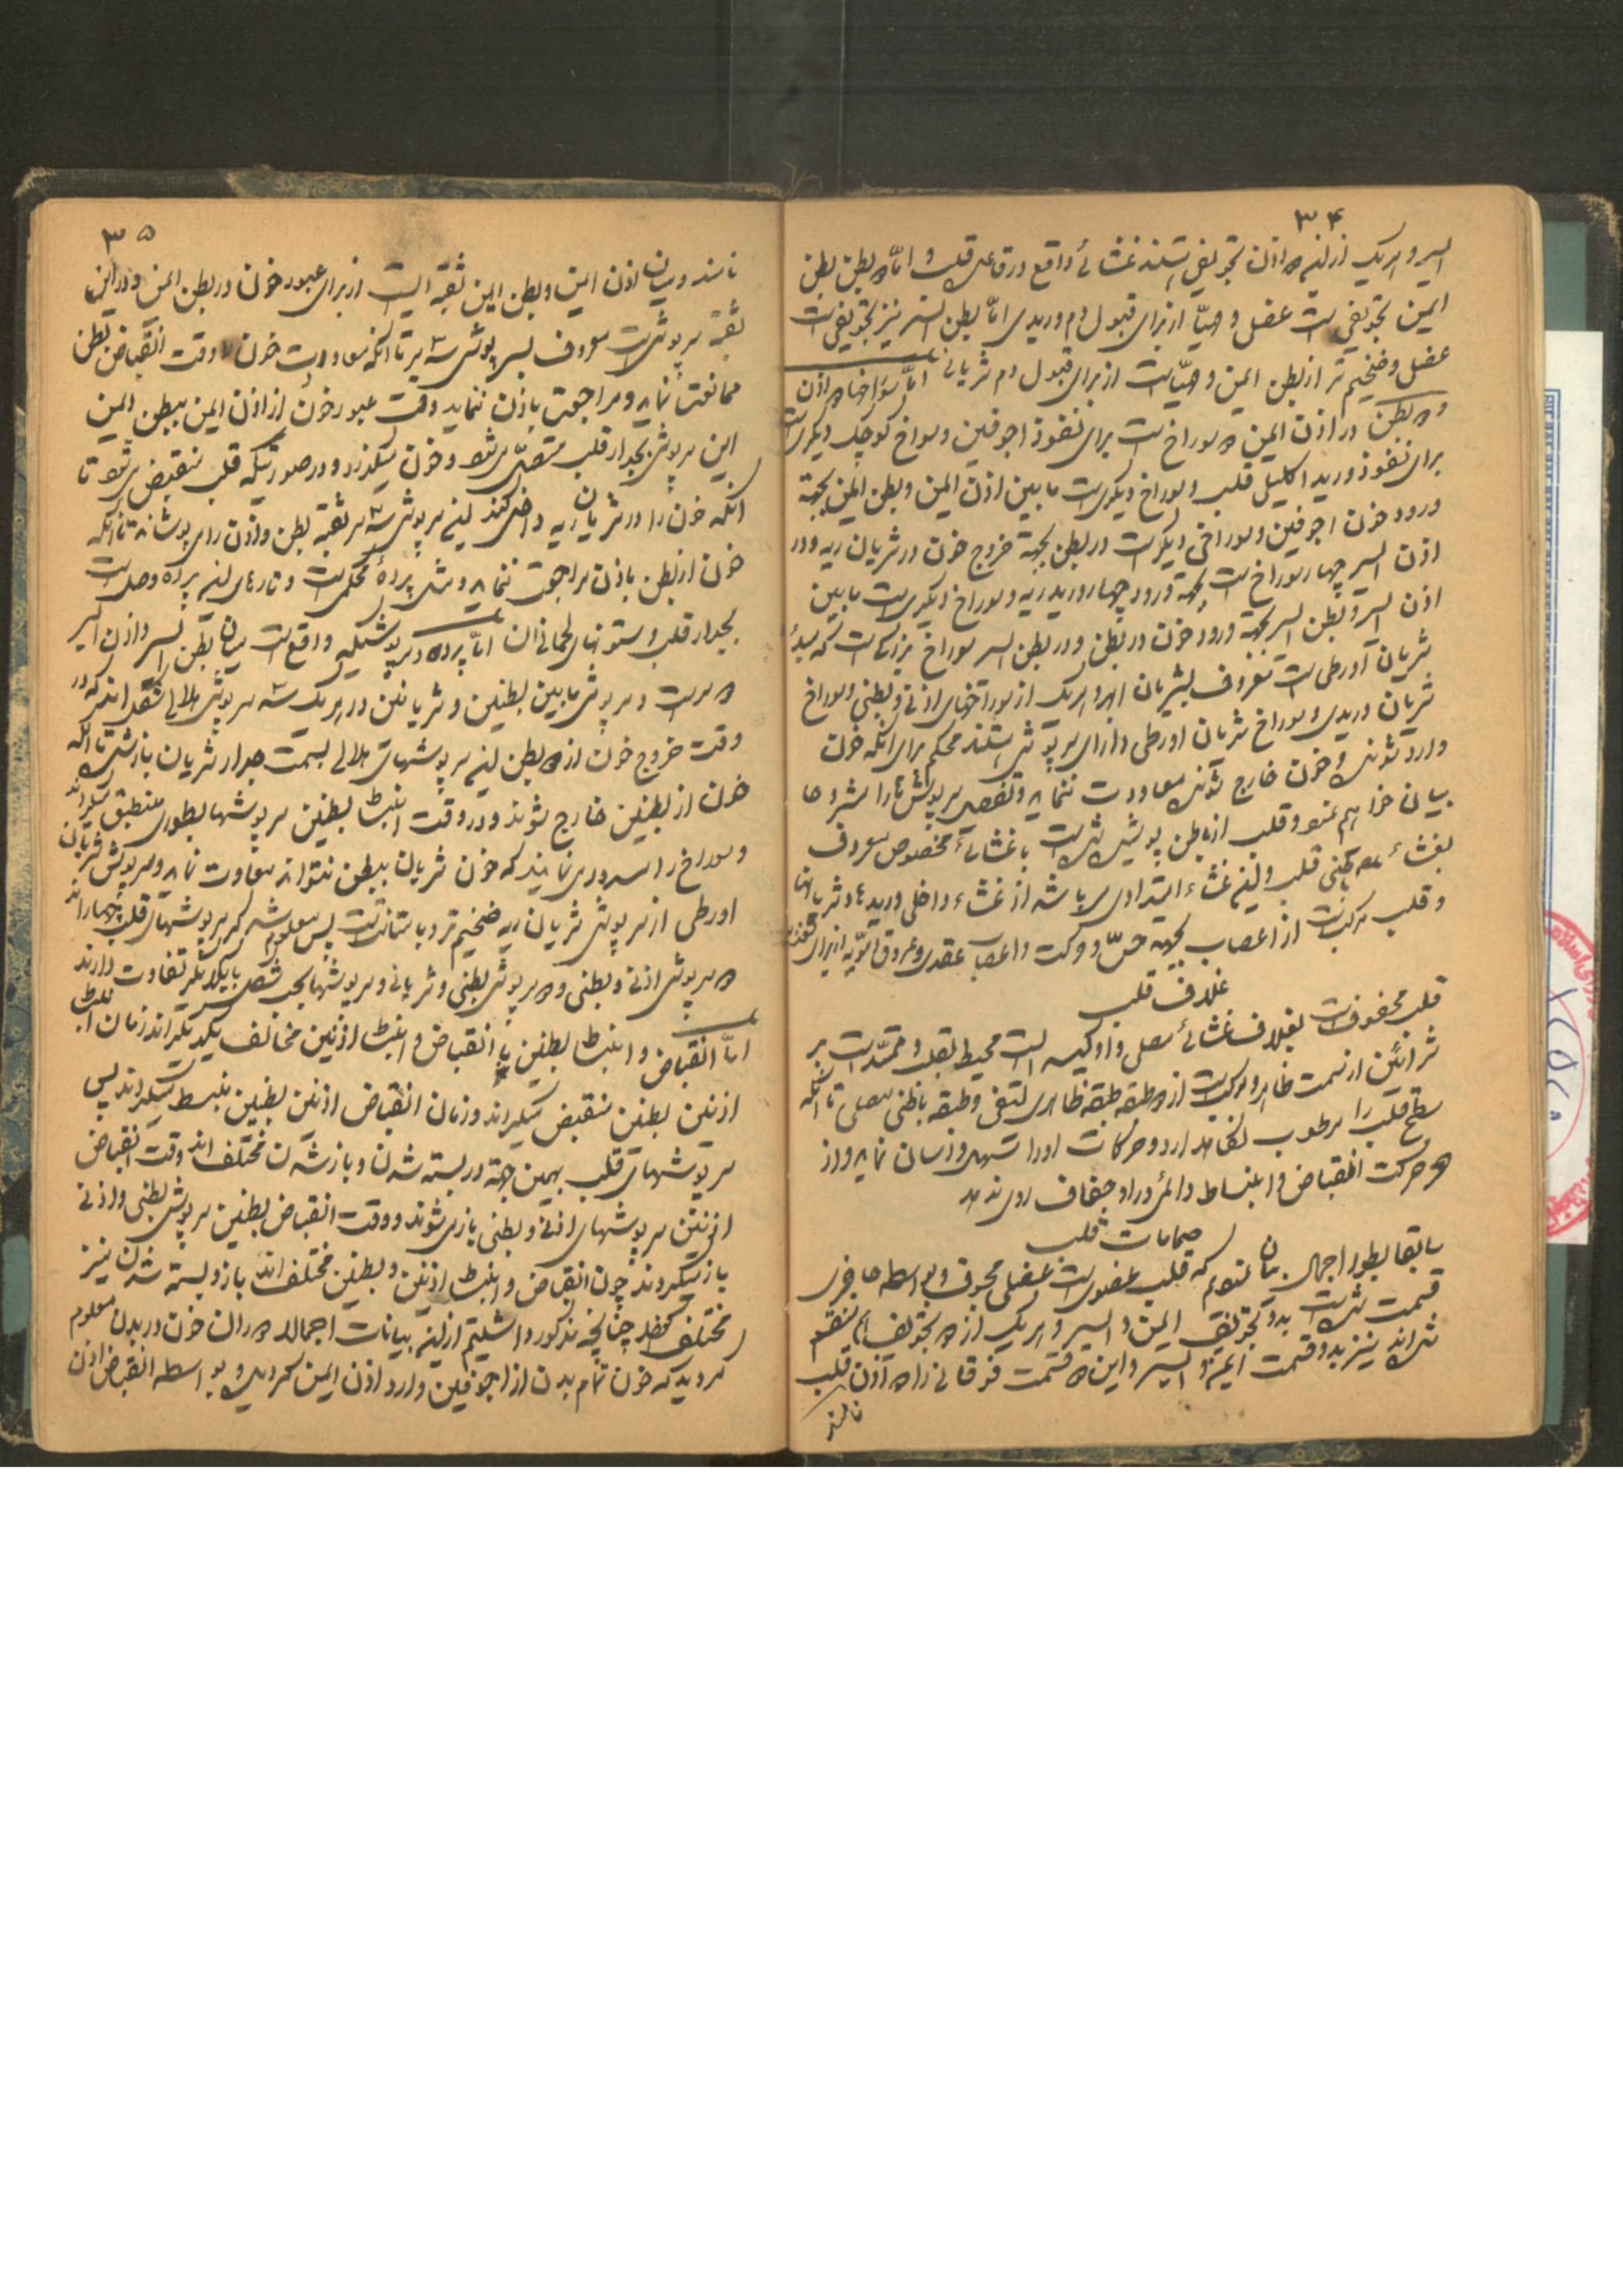 ۳۴
ایسر و هریک از این دو اذن تجویفی هستند غشائی واقع در قاعده قلب و اما دو بطن بطن
ایمن تجویفی است عضلی و مهیّا از برای قبول دم وریدی امّا بطن ایسر نیز تجویفی است
عضلی و ضخیم‌تر از بطن ایمن و مهیّاست از برای قبول دم شریانی امّا سوراخها دو اذن
و دو بطن در اذن ایمن دو سوراخ است برای نفوذ اجوفین و سوراخ کوچک دیگری است
برای نفوذ ورید اکلیلی قلب و سوراخ دیگری است ما بین اذن ایمن و بطن ایمن بجهة
ورود خون اجوفین و سوراخی دیگر است در بطن بجهة خروج خون در شریان ریه و در
اذن ایسر چهار سوراخ است بجهة ورود چهار ورید ریه و سوراخ دیگری است ما بین
اذن ایسر و بطن ایسر بجهة ورود خون در بطن و در بطن ایسر سوراخ بزرگی است که مبدأ
شریان آورطی است معروف بشریان ابهر و هریک از سوراخهای اذنی و بطنی و سوراخ
شریان وریدی و سوراخ شریان اورطی دارای سرپوشی هستند محکم برای آنکه خون
وارد شونده و خون خارج شونده معاودت ننماید و تفصیل سرپوش‌ها را مشروحا
بیان خواهم نمود و قلب از باطن پوشیده شده است با غشائی مخصوص معروف
بغشاء باطنی قلب و این غشاء امتدادی میباشد از غشاء داخلی وریدها و شریانها
و قلب مرکب است از اعصاب بجهة حسّ و حرکت و اعصاب عقدی و عروق از برای
غلاف قلب
قلب محفوف است بغلاف غشائی مصلی و او کیسه ایست محیط بقلب و ممتدّ است بر
شرائین از سمت ظاهر و مرکب است از دو طبقه طبقه ظاهری لیفی و طبقه باطنی مصلی تا آنکه
سطح قلب را مرطوب نگاه دارد و حرکات او را سهل و آسان نماید و از
حرکت انقباض و انبساط دائمی در او جفاف روی ندهد
صمامات قلب
سابقا بطور اجمال بیان نمودم که قلب عضوی است عضلی مجوف و بواسطه حاجزی
قسمت شده است بدو تجویف ایمن و ایسر و هریک از دو تجویف هم منقسم
شده‌اند نیز بدو قسمت ایمن و ایسر و این دو قسمت فوقانی را دو اذن قلب
نامند
۳۵
نامند و میان اذن ایمن و بطن ایمن ثقبه ایست از برای عبور خون در بطن ایمن و در این
ثقبه سرپوشی است معروف بسرپوش سه پر تا آنکه معاودت خون را وقت انقباض بطن
ممانعت نماید و مراجعت باذن ننماید وقت عبور خون از اذن ایمن ببطن ایمن
این سرپوش بجدار قلب متصل میشود و خون میگذرد و در صورتیکه قلب منقبض میشود تا
آنکه خون را در شریان ریه داخل کند این سرپوش سه پر ثقبه بطن و اذن را میپوشاند تا آنکه
خون از بطن باذن مراجعت ننماید و مثل پردهٔ محکمی است و تارهای این پرده وصل است
بجدار قلب و ستونهای لحمانی آن امّا پرده و سرپوشیکه واقع است میان بطن ایسر و اذن ایسر
دو پر است و سرپوش ما بین بطنین و شریانین در هریک سه سرپوش هلالی شکل‌اند که در
وقت خروج خون از دو بطن این سرپوشهای هلالی بسمت جدار شریان باز شده تا آنکه
خون از بطنین خارج شوند و در وقت انبساط بطنین سرپوشها بطوری منطبق میگردند
و سوراخ را مسدود مینمایند که خون شریان ببطن نتواند معاودت نماید و سرپوش شریان
اورطی از سرپوش شریان ریه ضخیم‌تر و با متانت است پس معلوم شد که سرپوشهای قلب چهارند
دو سرپوش اذنی و بطنی و دو سرپوش بطنی و شریانی و سرپوشها بحسب شکل با یکدیگر تفاوت دارند
امّا انقباض و انبساط بطنین با انقباض و انبساط اذنین مخالف یکدیگراند زمان انبساط
اذنین بطنین منقبض میگردند و زمان انقباض اذنین بطنین منبسط میگردند پس
سرپوشهای قلب بهمین جهة در بسته شدن و باز شدن مختلف‌اند وقت انقباض
اذنین سرپوشهای اذنی و بطنی باز میشوند و وقت انقباض بطنین سرپوش بطنی و اذنی
باز میگردند چون انقباض و انبساط اذنین و بطنین مختلف‌اند باز و بسته شدن نیز
مختلف چنانچه مذکور داشتیم از این بیانات اجمالا دوران خون در بدن معلوم
گردید که خون تمام بدن از اجوفین وارد اذن ایمن گردیده و بواسطه انقباض اذن